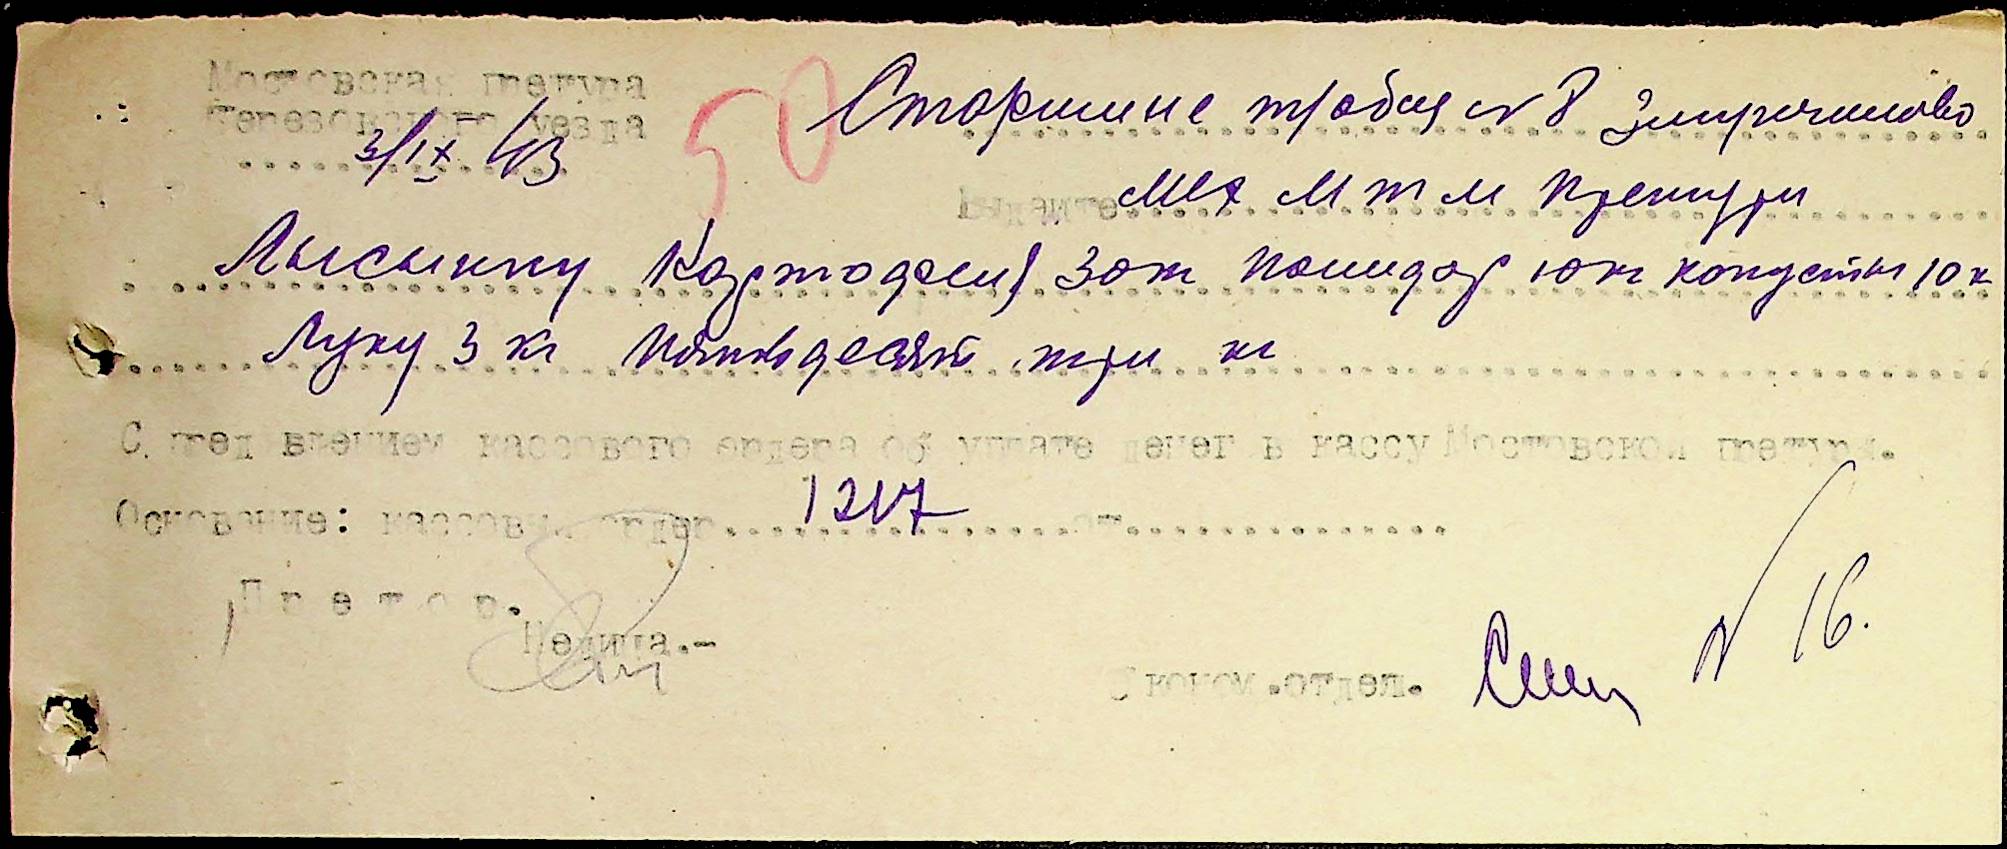 Мостовская претура
Березовского уезда
3/IX 43
50
Старшине трабия № 8
Выдайте МХ М т м Претури
Лысынку Картофеля 30 кг Помидор 10 кг Капусты 10 к
Луку 3 кг Пятьдесят три кг
С пред влением кассового ордера об уплате денег в кассу Мостовской претуры.
Основание: кассовый ордер 1217 от
Претор.
Экском.отдел. № 16.